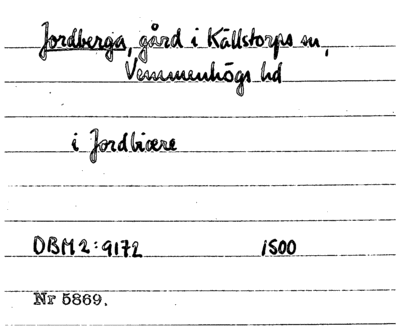 Jordberga, gård i Källstorps sn,
Vemmenhögs hd
i Jordbiære
DBM2:9172 1500
Nr 5869.